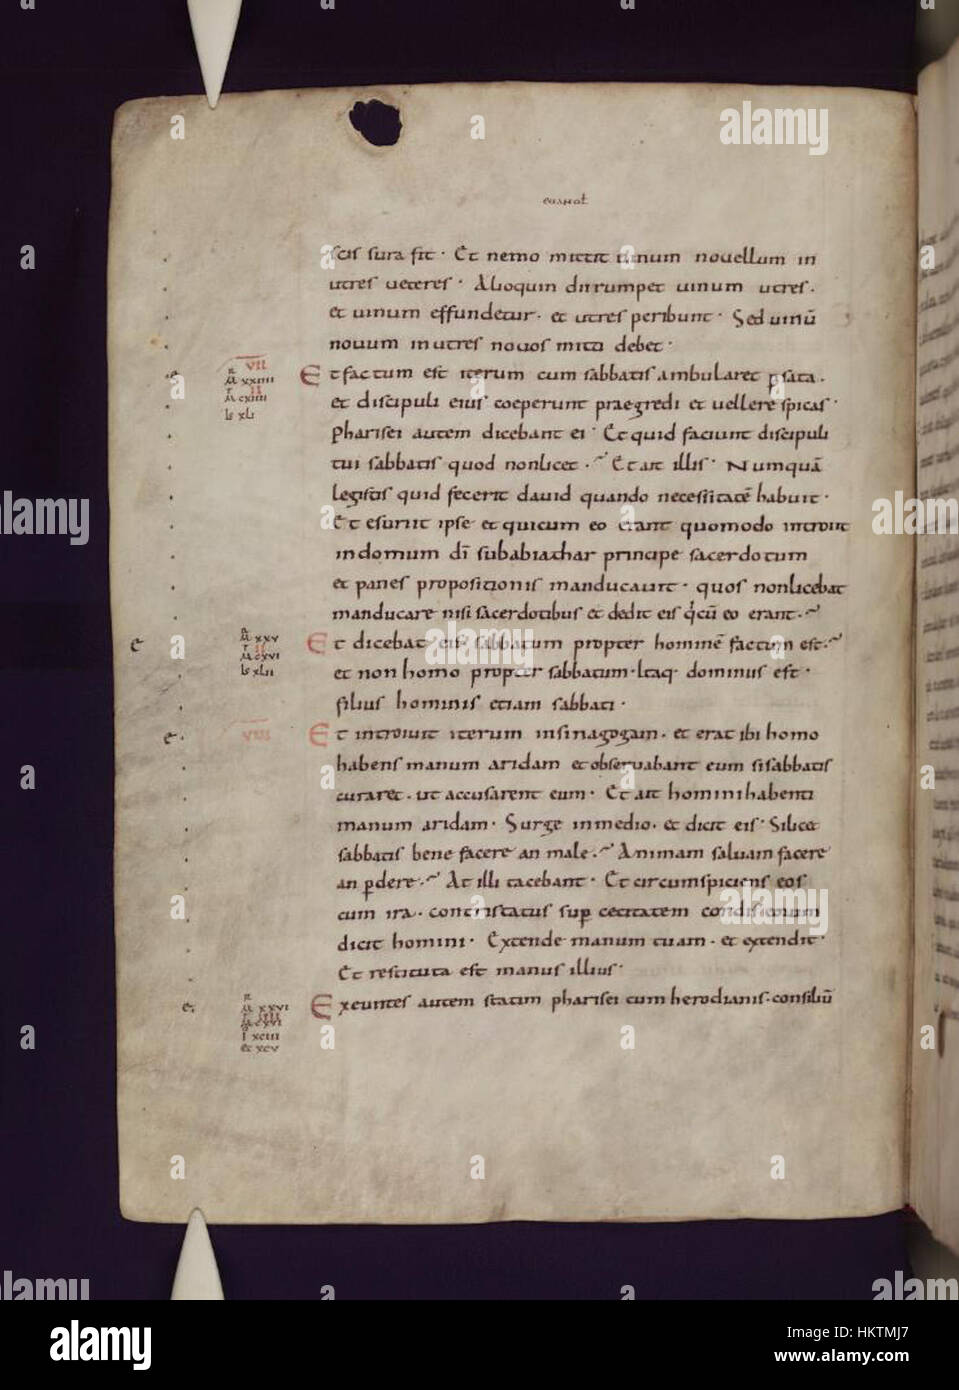 euangl
scis sura fit · Et nemo mittit uinum nouellum in
utres ueteres · Alioquin dirrumpet uinum utres ·
et uinum effundetur · et utres peribunt · Sed uinū
nouum in utres nouos mitti debet ·
VII
Et factum est iterum cum sabbatis ambularet p sata ·
M xxiiii
II
et discipuli eius coeperunt praegredi et uellere spicas ·
M cxiiii
L xli
Pharisei autem dicebant ei · Et quid faciunt discipuli
tui sabbatis quod non licet · Et ait illis · Numquā
legistis quid fecerit dauid quando necessitatē habuit ·
Et esuriit ipse et qui cum eo erant quomodo introiit
in domum dī sub abiathar principe sacerdotum
et panes propositionis manducauit · quos non licebat
manducare nisi sacerdotibus et dedit eis q cū eo erant ·
M xxv
Et dicebat eis · sabbatum propter hominē factum est ·
II
M cxvi
L xlii
et non homo propter sabbatum · Itaq dominus est
filius hominis etiam sabbati ·
VIII
Et introiuit iterum in sinagogam · et erat ibi homo
habens manum aridam et obseruabant eum si sabbatis
curaret · ut accusarent eum · Et ait homini habenti
manum aridam · Surge in medio · et dicit eis · Si licet
sabbatis bene facere an male · Animam saluam facere
an pdere · At illi tacebant · Et circumspiciens eos
cum ira · contristatus sup cecitatem cordis eorum
dicit homini · Extende manum tuam · et extendit ·
Et restituta est manus illius ·
M xxvi
Exeuntes autem statim pharisei cum herodianis · consiliū
IIII
M cxvi
I xciii
et xcv
alamy
HKTMJ7
www.alamy.com